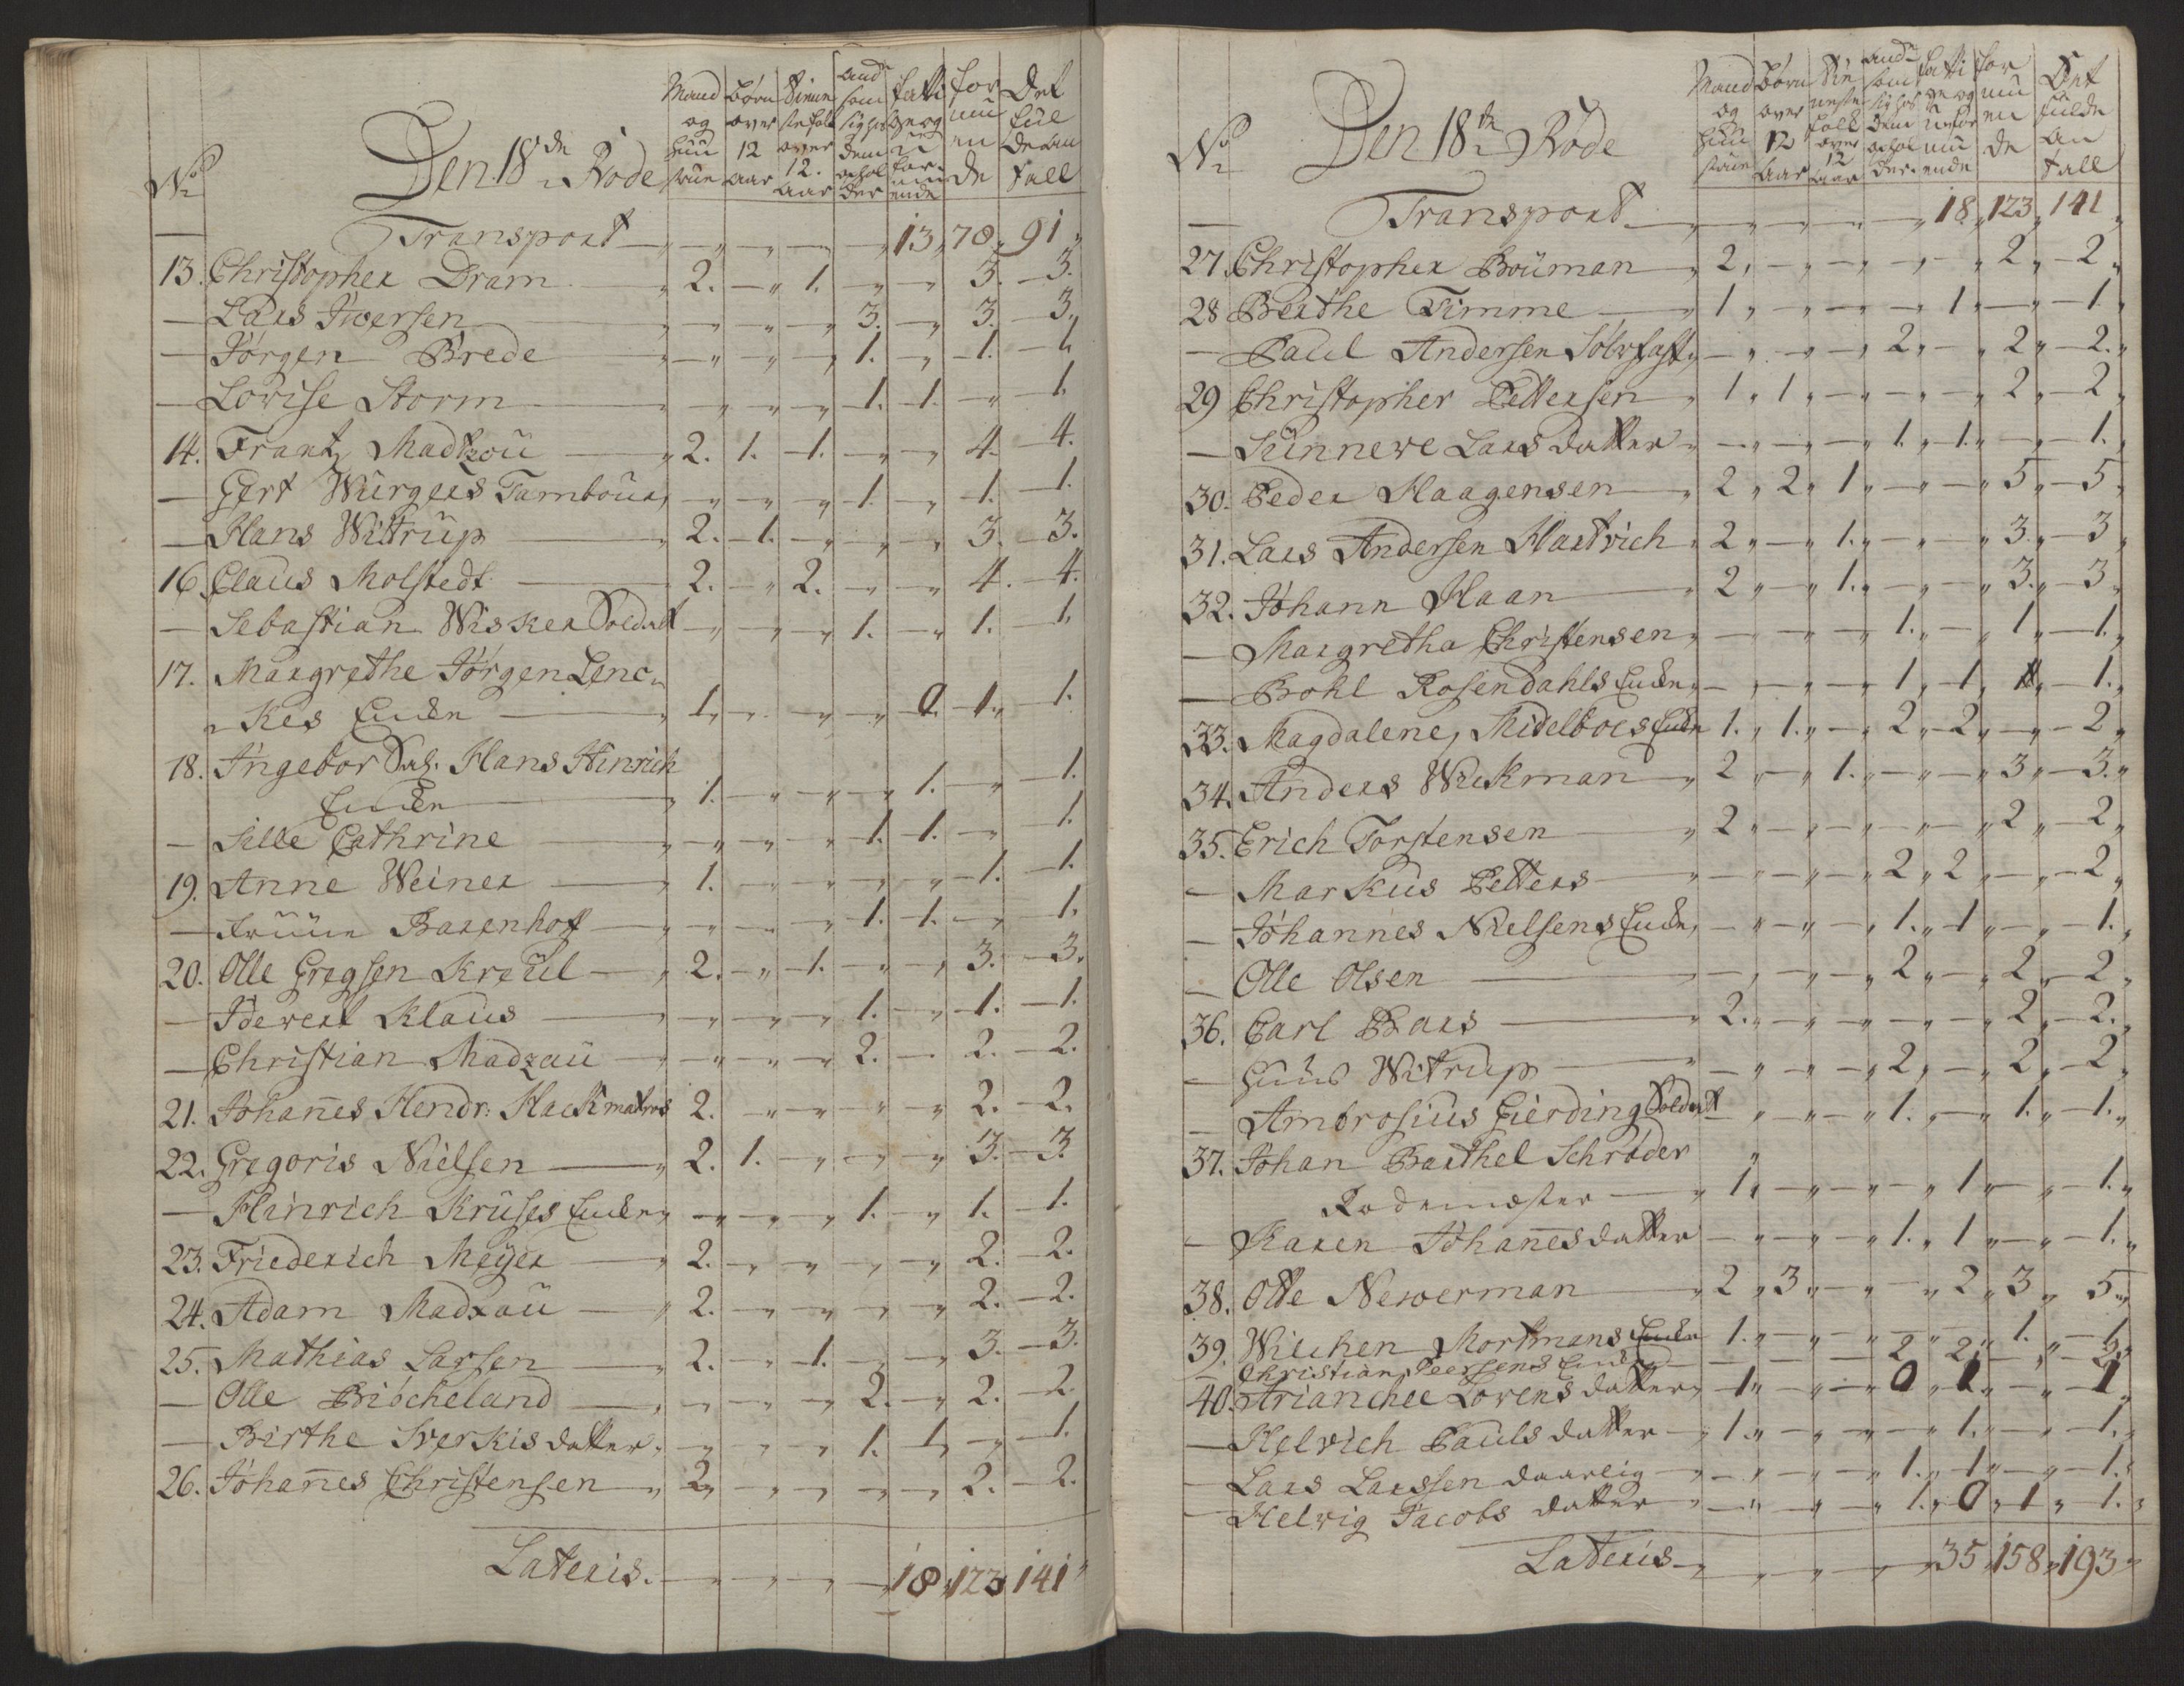 No Den 18de Rode Mand og Hustrue Børn over 12 Aar Tienneste folk over 12. Aar Andre som sig hos dem opholder fattige og uformuende formuende Det fulde Antall
— Transport — „ — „ — „ — „ — „ 13 „ 78 „ 91 „
13. Christopher Dram „ 2. — „ 1. — „ — „ 3. — 3.
— Lars Iwersen „ — „ — „ — „ 3. — „ 3. — 3.
— Jørgen Brede „ — „ — „ — „ 1. — „ 1. — 1.
— Lovise Storm „ — „ — „ — „ 1. — 1. — „ — 1.
14. Frantz Madtzou „ 2. 1. — 1. — „ — „ 4. — 4.
— Gert Würgers Tambour „ — „ — „ — „ 1. — „ 1. — 1.
— Hans Wittrup „ 2. — 1. — „ — „ — „ 3. — 3.
16. Claus Molstedt „ 2. — „ 2. — „ — „ 4. — 4.
— Sebastian Wisker Soldat — „ — „ — „ 1. — „ 1. — 1.
17. Margrethe Jørgen Lenc„
„ kes Enken „ 1. „ — „ — „ — „ 0. — 1. „ — 1.
18. Ingebor Sal. Hans Hinrich
Enken „ 1. — „ — „ — „ 1. — „ — 1.
— Sille Cathrine „ — „ — „ — „ 1. 1. — „ — 1.
19. Anne Weiner „ 1. — „ — „ — „ — „ 1. — 1.
— Baxenhoff — „ — „ — „ — „ 1. — 1. — „ — 1.
20. Olle Gregsen Kreül — „ 2. — „ 1. — „ — „ 3. — 3.
— Iverent Klaus — „ — „ — „ — „ 1. — „ 1. — 1.
— Christian Madzau — „ — „ — „ — „ 2. — 2. — 2.
21. Johañes Hendr: Hackmaters 2. — „ — „ — „ — „ 2. — 2.
22. Gregoris Nielsen — „ 2. 1. — „ — „ — „ 3. — 3.
— Hinrich Kruses Enken „ — „ — „ — „ 1. — „ 1. — 1.
23. Friederich Meÿer — „ 2. — „ — „ — „ — „ 2. — 2.
24. Adam Madzau — „ 2. — „ — „ — „ — „ 2. — 2.
25. Mathias Larsen — „ 2. — „ 1. — „ — „ 3. — 3.
— Olle Biöcheland — „ — „ — „ — „ 2. — „ 2. — 2.
— Birthe Sverkis datter „ — „ — „ — „ 1. 1. — „ — 1.
26. Johañes Christensen — „ 2 „ — „ — „ — „ — „ 2. — 2.
Lateris. — „ — „ — „ — „ — 18 „ 123 141 „
No Den 18de Rode Mand og Hustrue Børn over 12 Aar Tienneste folk over 12 Aar Andre som sig hos dem ophol der fattige og uformuende formuende Det fulde Antall
— Transport — „ — „ — „ — „ — „ 18 „ 123 „ 141 „
27. Christopher Boüman „ 2 „ — „ — „ — „ — „ 2 „ — 2 „
28 Berthe Timme „ 1 „ — „ — „ — „ 1 „ — „ — 1 „
— Paul Andersen Sølvfast „ — „ — „ — „ 2 „ — „ 2 „ — 2. „
29 Christopher Pettersen „ 1 „ 1 „ — „ — „ — „ 2 „ — 2 „
— Sünnewe Lars datter „ — „ — „ — „ 1. „ 1. „ — „ — 1. „
30. Peder Haagensen „ 2 „ 2 „ 1 „ — „ — „ 5 „ — 5 „
31. Lars Andersen Hartvich „ 2 „ — „ 1. „ — „ — „ 3. „ — 3 „
32. Johann Haan „ 2 „ — „ 1. „ — „ — „ 3. „ — 3 „
— Margretha Christensen „ — „ — „ — „ 1. „ — „ 1 „ — 1. „
— Bohl Rosendahls Enken „ — „ — „ — „ 1 „ 1 „ „ — 1. „
33. Magdalene, Midelboes Enken 1. „ 1. „ — „ 2 „ 2 „ — „ — 2 „
34. Anders Wickman „ 2 „ — „ 1. „ — „ — „ 3 „ — 3. „
35. Erich Torstensen „ 2 „ — „ — „ — „ — „ 2 „ — 2 „
— Markus Petters „ — „ — „ — „ 2 „ 2 „ — „ — 2 „
— Johannes Nielsens Enke „ — „ — „ — „ 1. „ 1 „ — „ — 1. „
— Olle Olsen „ — „ — „ — „ 2 „ — „ 2 „ — 2 „
36. Carl Bars „ 2. „ — „ — „ — „ — „ 2 „ — 2. „
— Witrup „ — „ — „ — „ 2 „ — „ 2 „ — 2 „
— Ambrosius Gierding Soldat „ — „ — „ 1. „ — „ 1. „ — 1. „
37. Johan Barthel Schrøder „
Rodemæster „ 1 „ — „ — „ — „ 1 „ — „ — 1. „
— Karen Johañesdatter — „ — „ — „ 1. „ 1 „ — „ — 1. „
38. Otte Newerman „ 2 „ 3 „ — „ — „ 2 „ 3 „ 5 „
39. Wilchen Mortmans Enken 1. „ — „ — „ — „ — „ 1. „ — 1.
— Christian Peersens Enke — — — — 2 „ 2 „ — „ — 2. „
40. Arianchee Lorens datter „ 1 „ — „ — „ 0 „ 1 „ — „ — 1 „
— Helvich Pauls datter — „ 1. „ — „ — „ — „ 1. „ — „ — 1. „
— Lars Larssen daarlig — „ — „ — „ — „ 1. „ 1 „ — „ — 1. „
— Helvig Jacobs datter — „ — „ — „ — „ 1. „ 0 „ 1 „ — 1. „
Lateris — „ — „ — „ — „ — „ 35 „ 158 „ 193 „